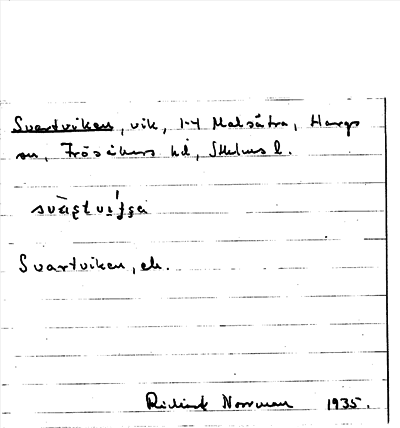 Svartviken, vik, 1-4 Malsätra, Hargs
sn, Frösåkers hd, Sthlms l.
Svartviken, ek.
Rickard Norrman 1935.